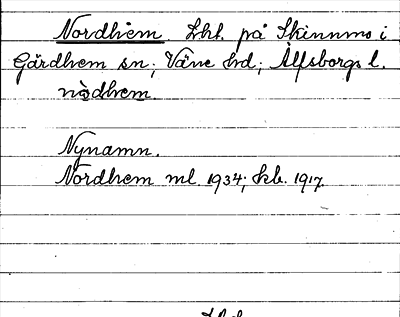 Nordhem. Lht. på Skinnmo i
Gärdhem sn; Väne hd; Älfsborgs l.
nòdhem.
Nynamn.
Nordhem ml. 1934; kb. 1917.